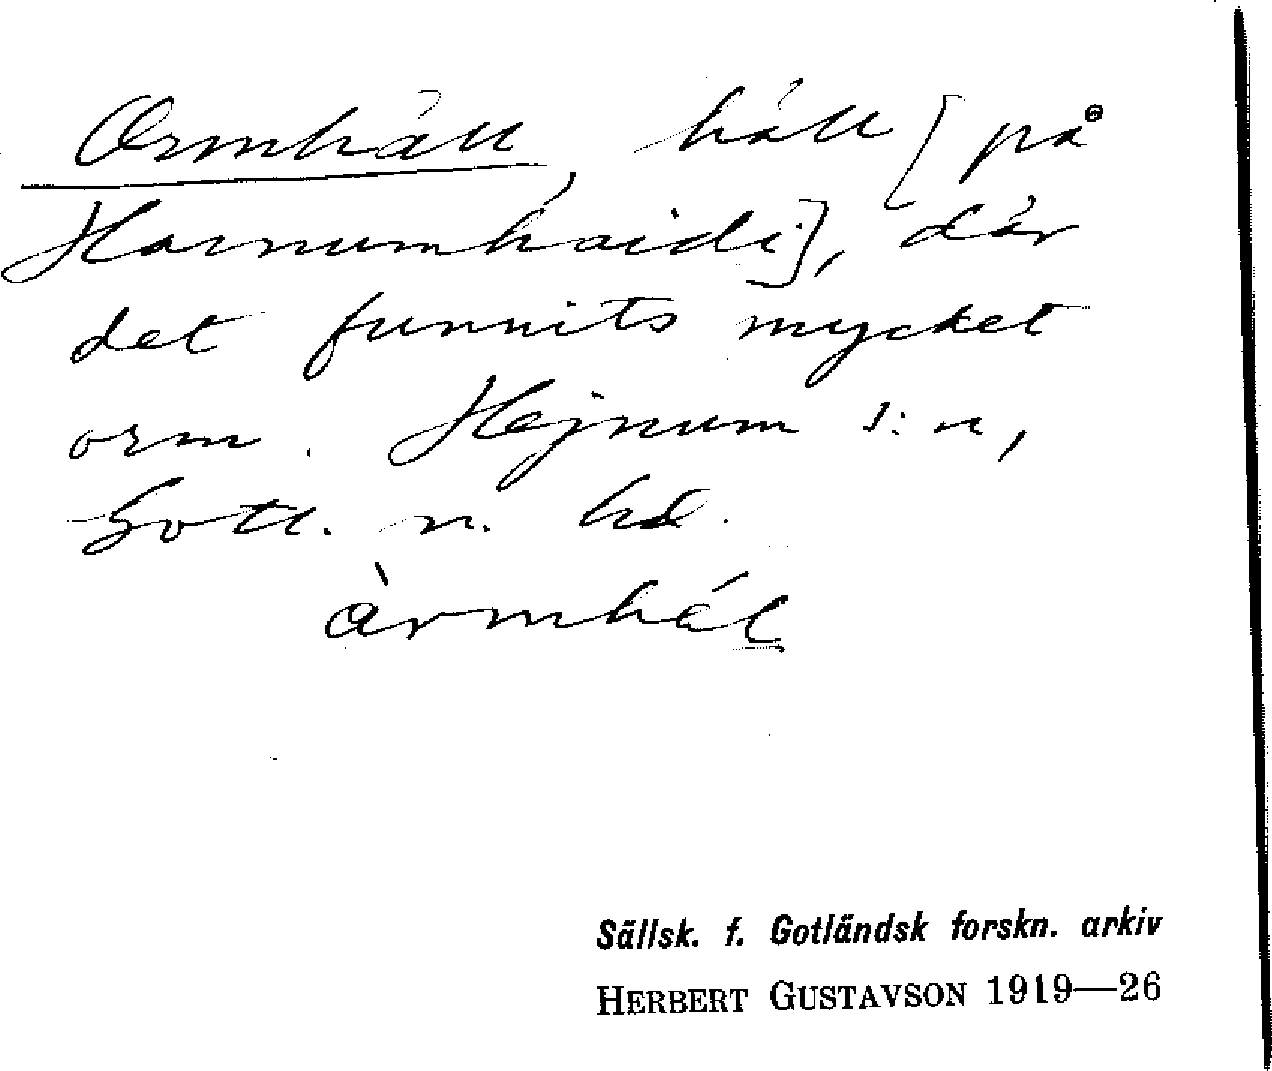 Ormhäll, häll [på
Hainumhaidi], där
det funnits mycket
orm. Hejnum s:n,
Gotl. n. hd.
àrmhél
Sällsk. f. Gotländsk forskn. arkiv
HERBERT GUSTAVSON 1919—26